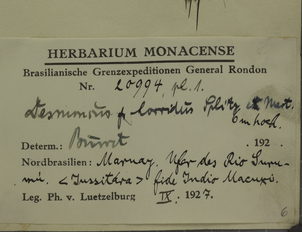 HERBARIUM MONACENSE
Brasilianische Grenzexpeditionen General Rondon
Nr. 20994, pl. 1.
Desmoncus horridus Splitg. et Mart.
6 m hoch.
Determ.: Burret 192
Nordbrasilien: Marnay. Ufer des Rio Suru-
mú. <Jussitára> fide Indio Macuxi.
Leg. Ph. v. Luetzelburg IX. 1927.
6